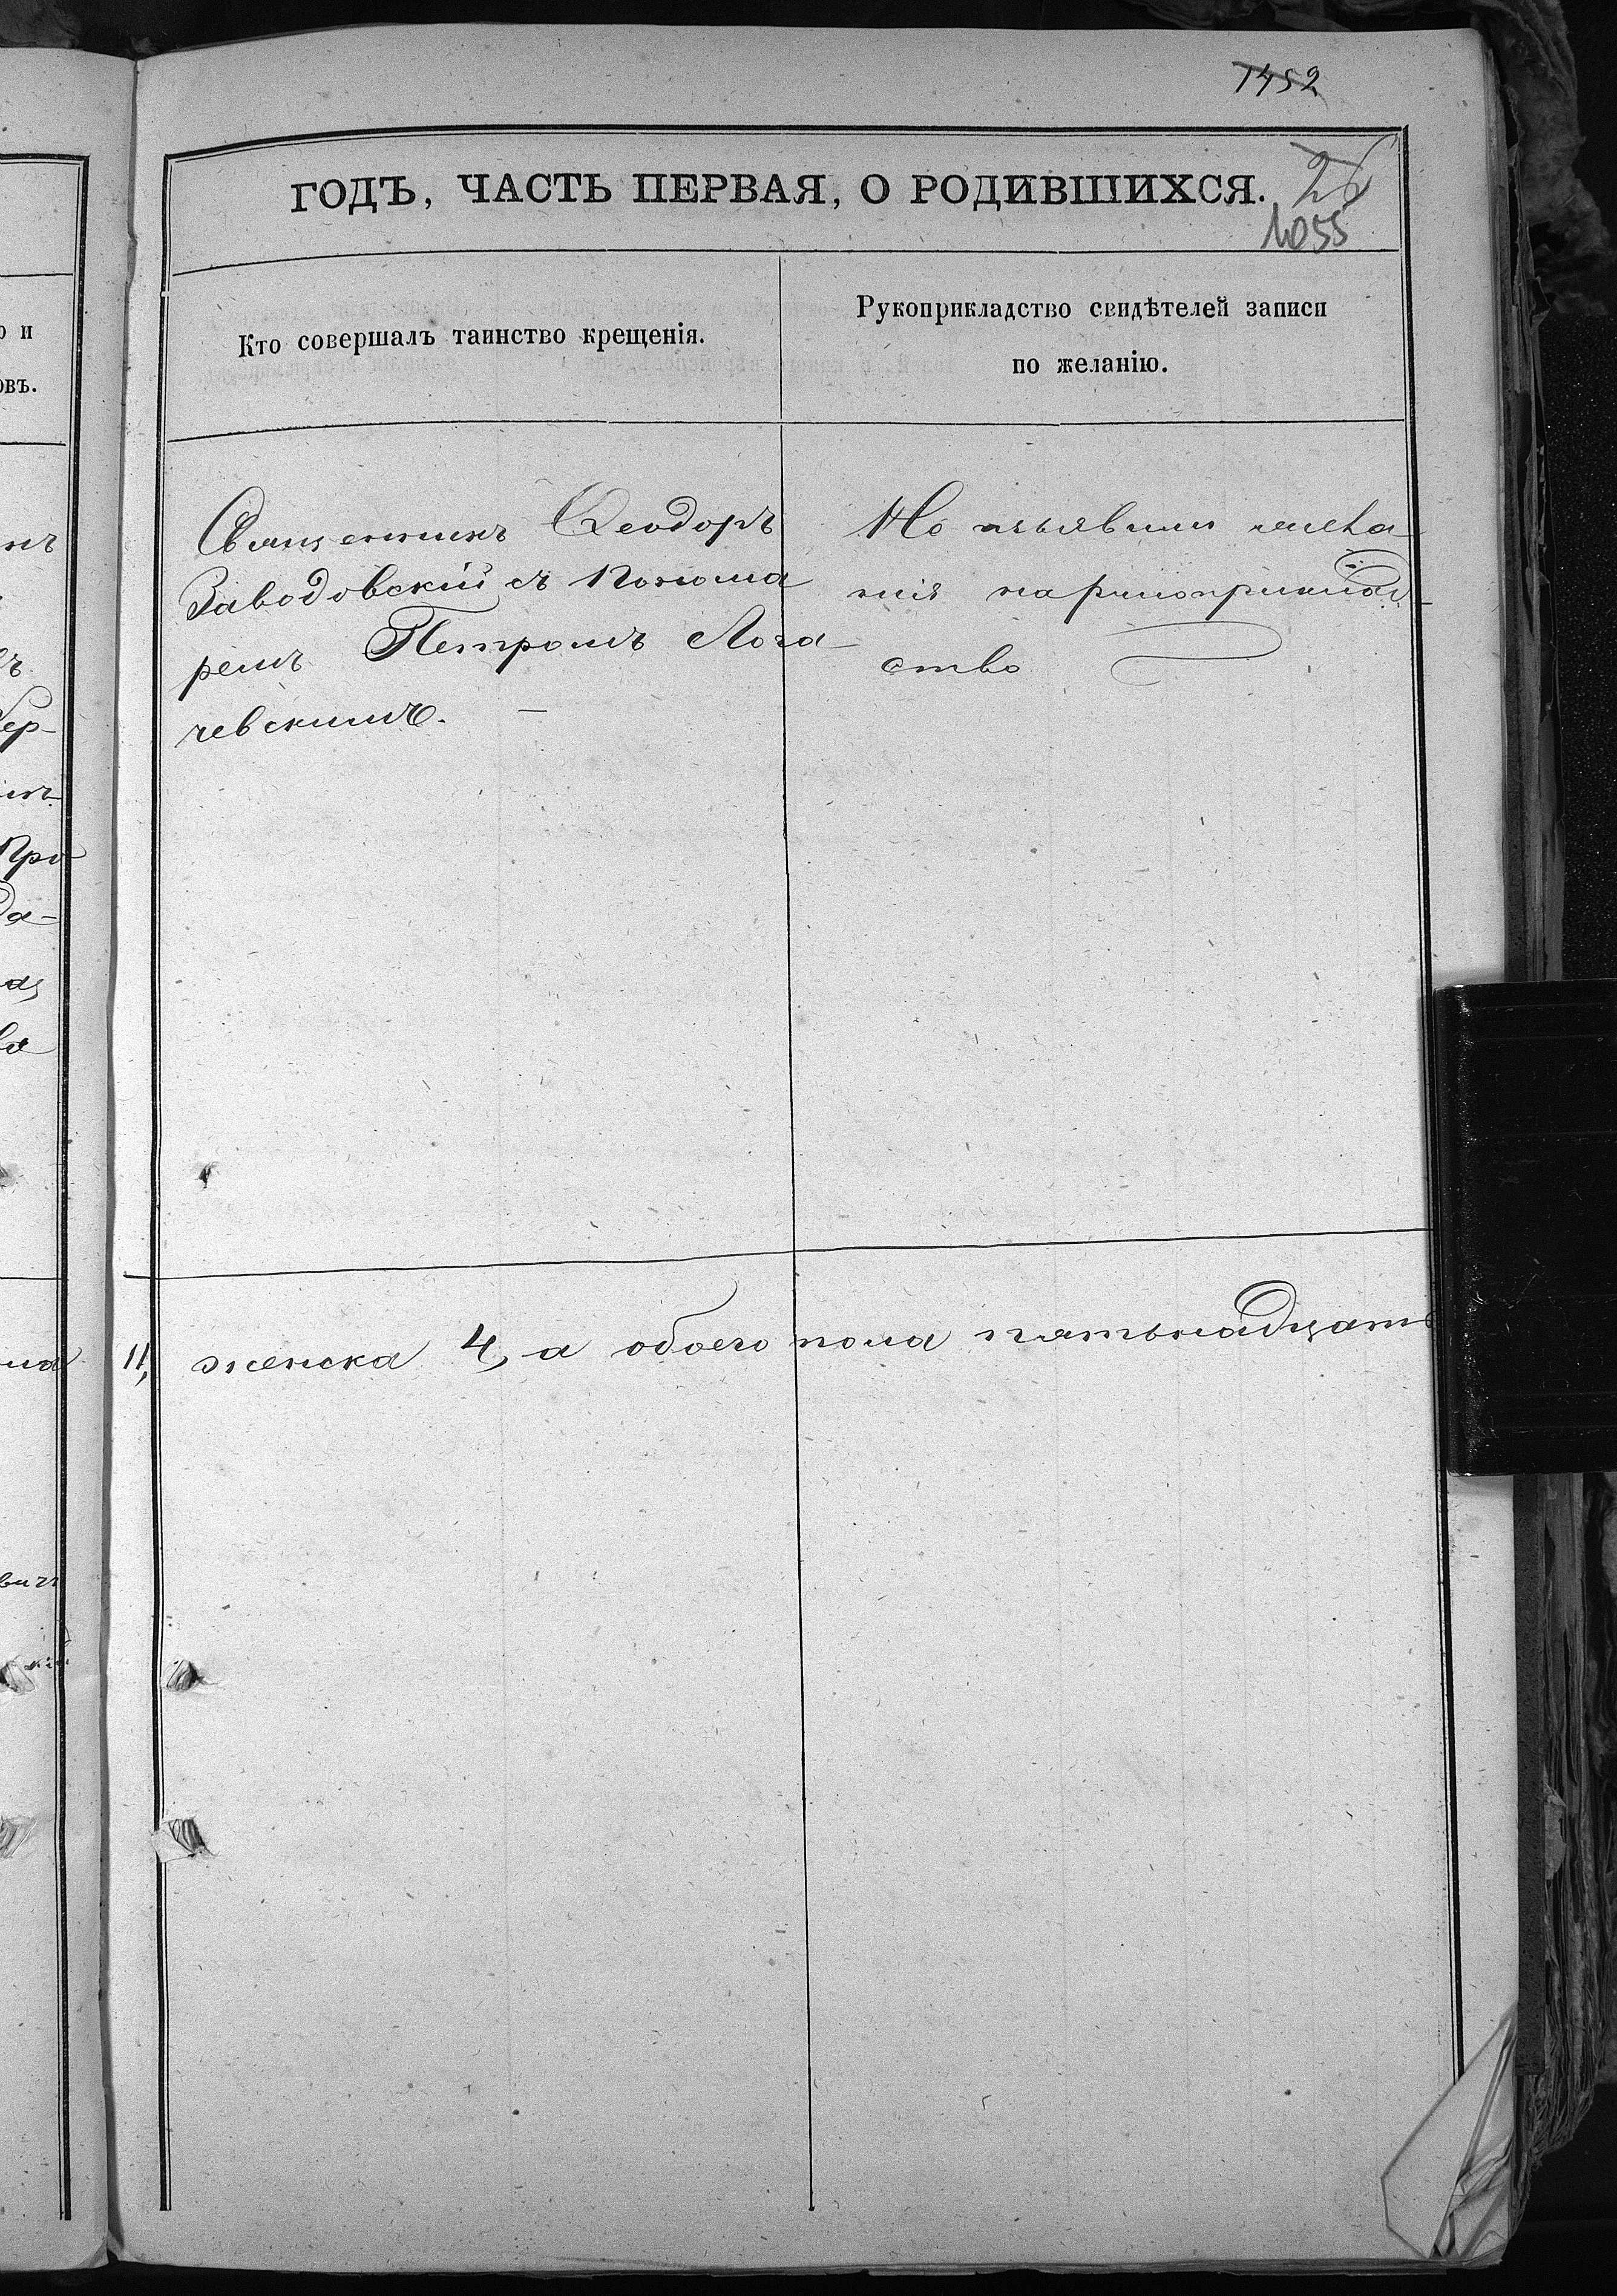 1452
ГОДЪ, ЧАСТЬ ПЕРВАЯ, О РОДИВШИХСЯ. 26
1055
Кто совершалъ таинство крещенія.
Рукоприкладство свидѣтелей записи
по желанію.
Священникъ Ѳеодоръ
Заводовскій съ понома
ремъ Петромъ Лога
чевскимъ. —
Не изъявили жела
нія на рукоприклад
ство
11, женска 4, а обоего пола пятьнадцать
о и
овъ.
нъ
ъ
бер-
Про
да-
ва
ла
вичъ
кій